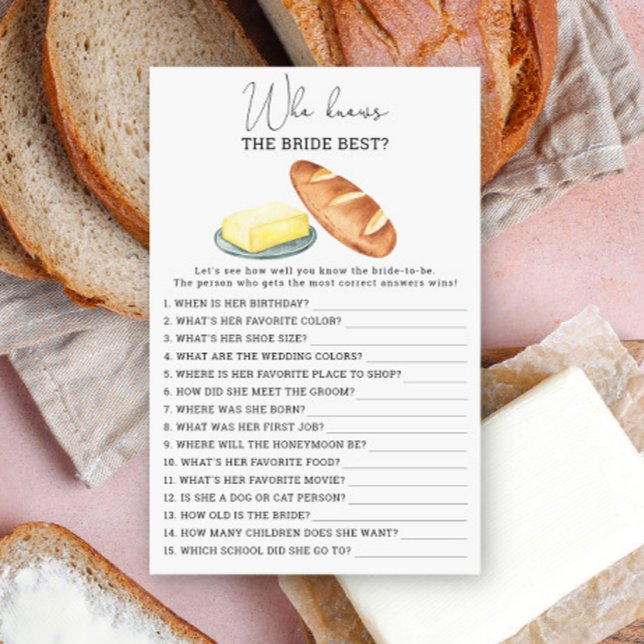 Who knows
THE BRIDE BEST?
Let's see how well you know the bride-to-be.
The person who gets the most correct answers wins!
1. WHEN IS HER BIRTHDAY?
2. WHAT'S HER FAVORITE COLOR?
3. WHAT'S HER SHOE SIZE?
4. WHAT ARE THE WEDDING COLORS?
5. WHERE IS HER FAVORITE PLACE TO SHOP?
6. HOW DID SHE MEET THE GROOM?
7. WHERE WAS SHE BORN?
8. WHAT WAS HER FIRST JOB?
9. WHERE WILL THE HONEYMOON BE?
10. WHAT'S HER FAVORITE FOOD?
11. WHAT'S HER FAVORITE MOVIE?
12. IS SHE A DOG OR CAT PERSON?
13. HOW OLD IS THE BRIDE?
14. HOW MANY CHILDREN DOES SHE WANT?
15. WHICH SCHOOL DID SHE GO TO?